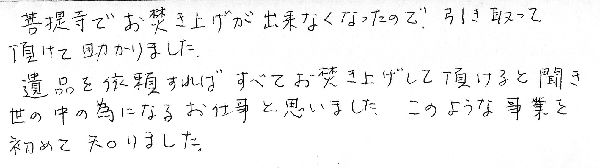 菩提寺でお焚き上げが出来なくなったので、引き取って
頂けて助かりました。
遺品を依頼すればすべてお焚き上げして頂けると聞き
世の中の為になるお仕事と思いました。このような事業を
初めて知りました。